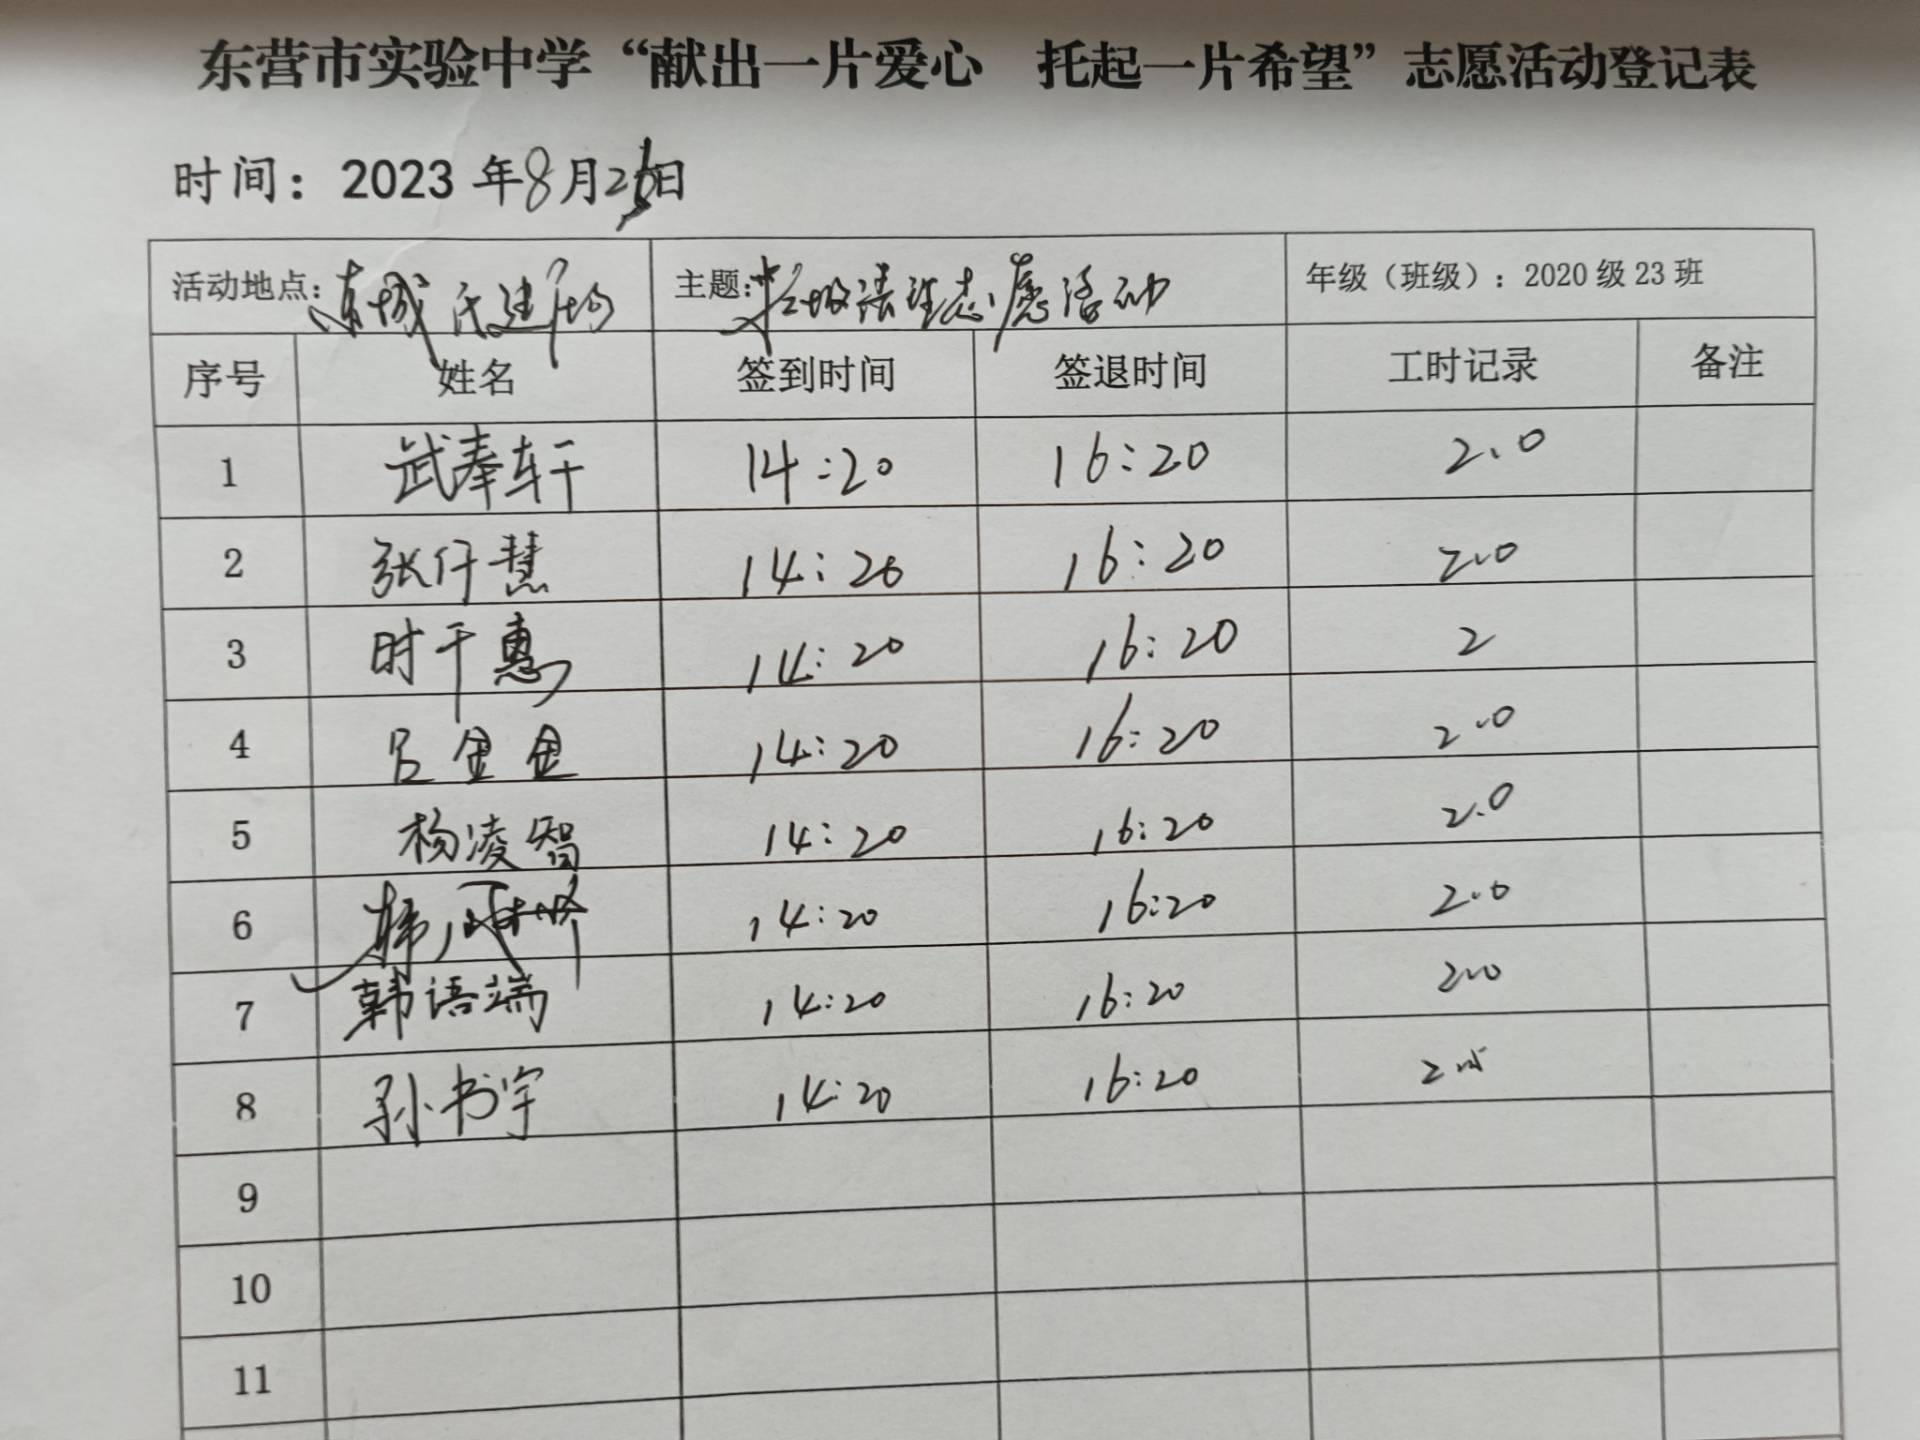 东营市实验中学“献出一片爱心 托起一片希望”志愿活动登记表
时间：2023年8月2日
活动地点：东城 主题：垃圾清理志愿活动 年级（班级）：2020级23班
序号 姓名 签到时间 签退时间 工时记录 备注
1 武奉轩 14:20 16:20 2.0
2 张仟慧 14:20 16:20 2.0
3 时千惠 14:20 16:20 2
4 吕金金 14:20 16:20 2.0
5 杨凌智 14:20 16:20 2.0
6 韩 14:20 16:20 2.0
7 韩语端 14:20 16:20 2.0
8 孙书宇 14:20 16:20
9
10
11